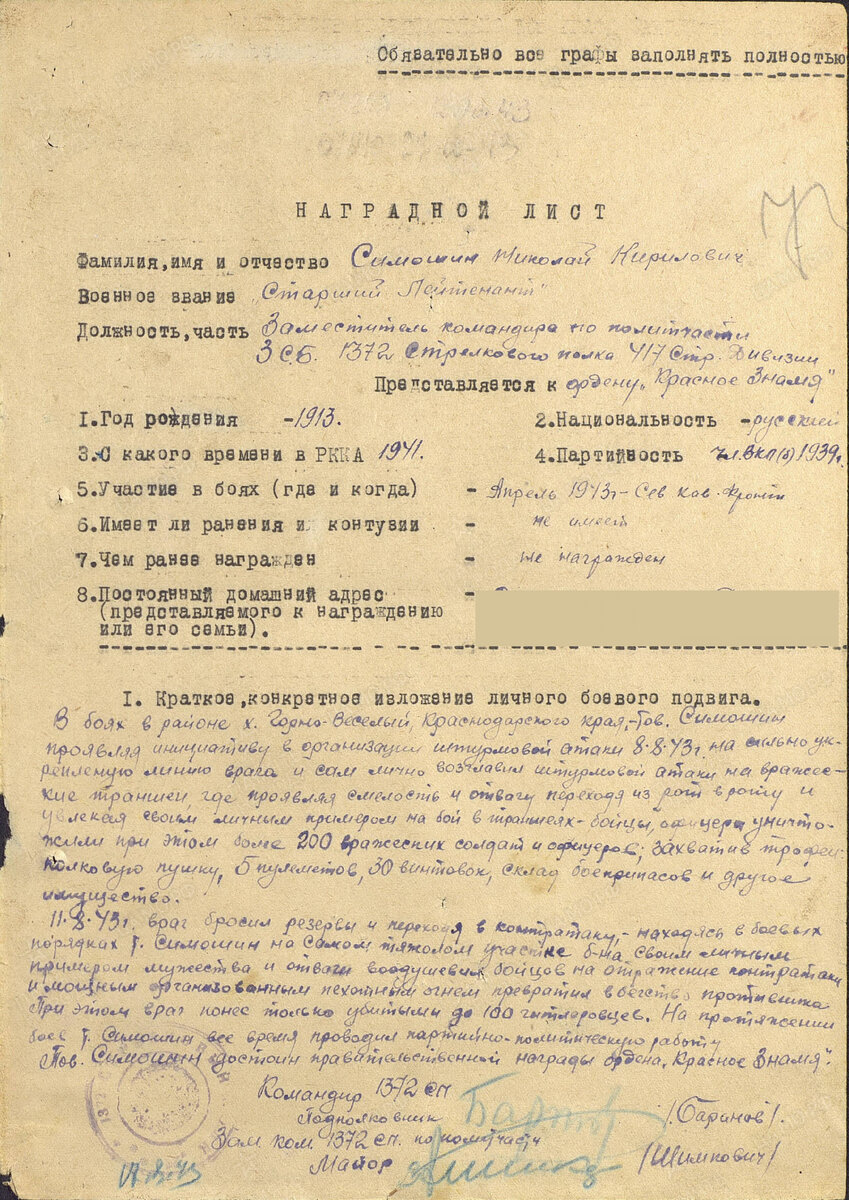 Обязательно все графы заполнять полностью
НАГРАДНОЙ ЛИСТ
Фамилия, имя и отчество Симошин Николай Кирилович
Военное звание „Старший Лейтенант"
Должность, часть Заместитель командира по политчасти
3 СБ. 1372 Стрелкового полка 417 Стр. Дивизии
Представляется к ордену „Красное Знамя"
1. Год рождения -1913. 2. Национальность -русский
3. С какого времени в РККА 1941. 4. Партийность чл. ВКП(б) 1939г.
5. Участие в боях (где и когда) - Апрель 1943г - Сев Кав. Фронт
6. Имеет ли ранения или контузии - не имеет
7. Чем ранее награжден - не награжден
8. Постоянный домашний адрес -
(представляемого к награждению
или его семьи).
I. Краткое, конкретное изложение личного боевого подвига.
В боях в районе х. Горно-Веселый, Краснодарского края,- Тов. Симошин
проявляя инициативу в организации штурмовой атаки 8.8.43г на сильно ук-
репленую линию врага и сам лично возглавил штурмовой атаки на вражес-
кие траншеи, где проявляя смелость и отвагу переходя из рот в роту и
увлекая своим личным примером на бой в траншеях - бойцы, офицеры уничто-
жили при этом более 200 вражеских солдат и офицеров, захватив трофеи-
полковую пушку, 5 пулеметов, 30 винтовок, склад боеприпасов и другое
имущество.
11.8.43г. враг бросил резервы и переходя в контратаку,- находясь в боевых
порядках т. Симошин на самом тяжолом участке б-на своим личным
примером мужества и отваги воодушевил бойцов на отражение контратаки
и мощным организованным пехотным огнем превратил в бегство противника
При этом враг понес только убитыми до 100 гитлеровцев. На протяжении
боев т. Симошин все время проводил партийно-политическую работу
Тов. Симошин достоин правательственной награды ордена „Красное Знамя".
Командир 1372 сп
Подполковник /Баринов/.
Зам ком. 1372 сп. по политчасти
Майор /Шимкович/